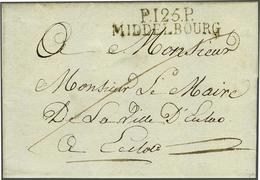 P.125.P.
MIDDELBOURG
A Monsieur
Monsieur Le Maire
De La Ville D'Ecloo
a Ecloo